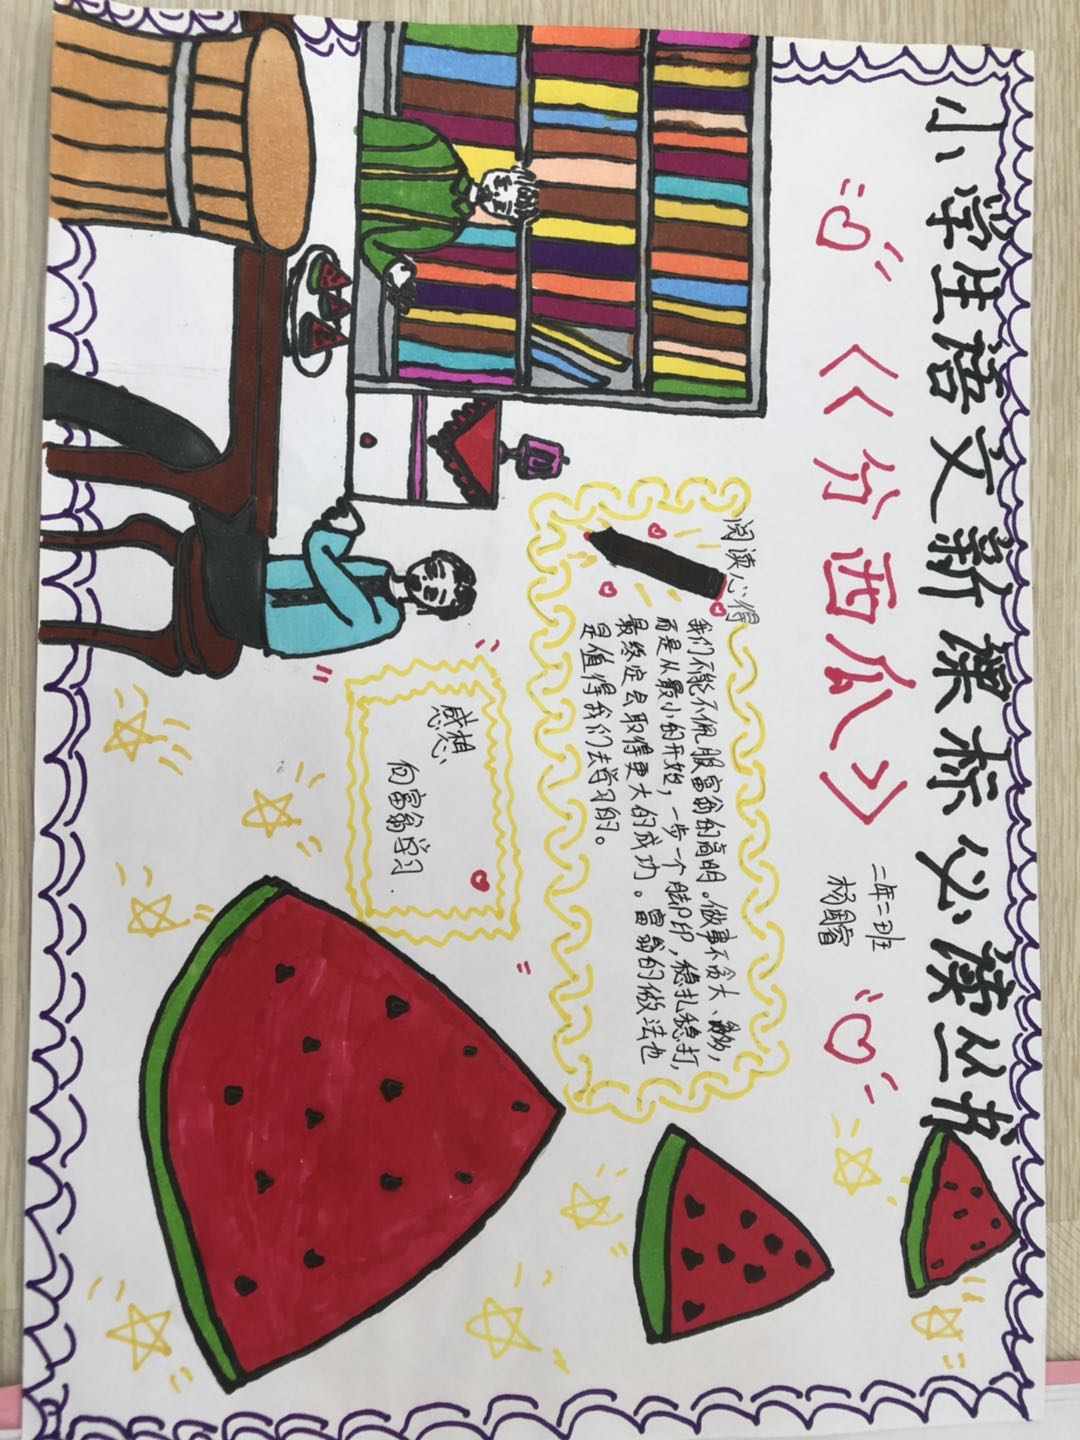 小学生语文新课标必读丛书
《分西瓜》
二年二班
杨睿
阅读心得
我们不能不佩服富翁的高明。做事不贪大、
而是从最小的开始，一步一个脚印，稳扎稳打，
最终定会取得更大的成功。富翁的做法也
是值得我们去学习的。
感想、
向富翁学习.